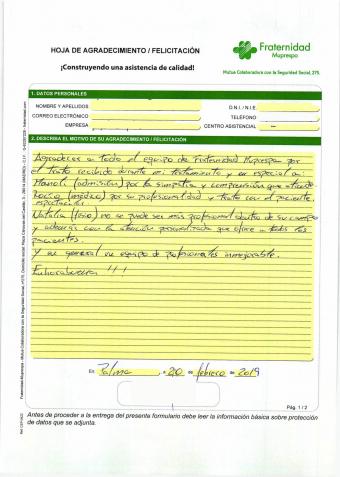 HOJA DE AGRADECIMIENTO / FELICITACIÓN
¡Construyendo una asistencia de calidad!
Fraternidad
Muprespa
Mutua Colaboradora con la Seguridad Social, 275.
1. DATOS PERSONALES
NOMBRE Y APELLIDOS
D.N.I. / N.I.E.
CORREO ELECTRÓNICO
TELÉFONO
EMPRESA
CENTRO ASISTENCIAL
2. DESCRIBA EL MOTIVO DE SU AGRADECIMIENTO / FELICITACIÓN
Agradecer a todo el equipo de Fraternidad Muprespa por
el trato recibido durante mi tratamiento y en especial a:
Manoli (admisión) por la simpatía y comprensión que
Rocío (médico) por su profesionalidad y trato con el paciente.
espectacular.
Natalia (fisio) no se puede ser más profesional dentro de su campo
y además con la atención personalizada que ofrece a todos los
pacientes.
Y en general un equipo de profesionales inmejorable.
Enhorabuena!!!
En Palma, a 20 de febrero de 2019
Pág. 1 / 2
Antes de proceder a la entrega del presente formulario debe leer la información básica sobre protección
de datos que se adjunta.